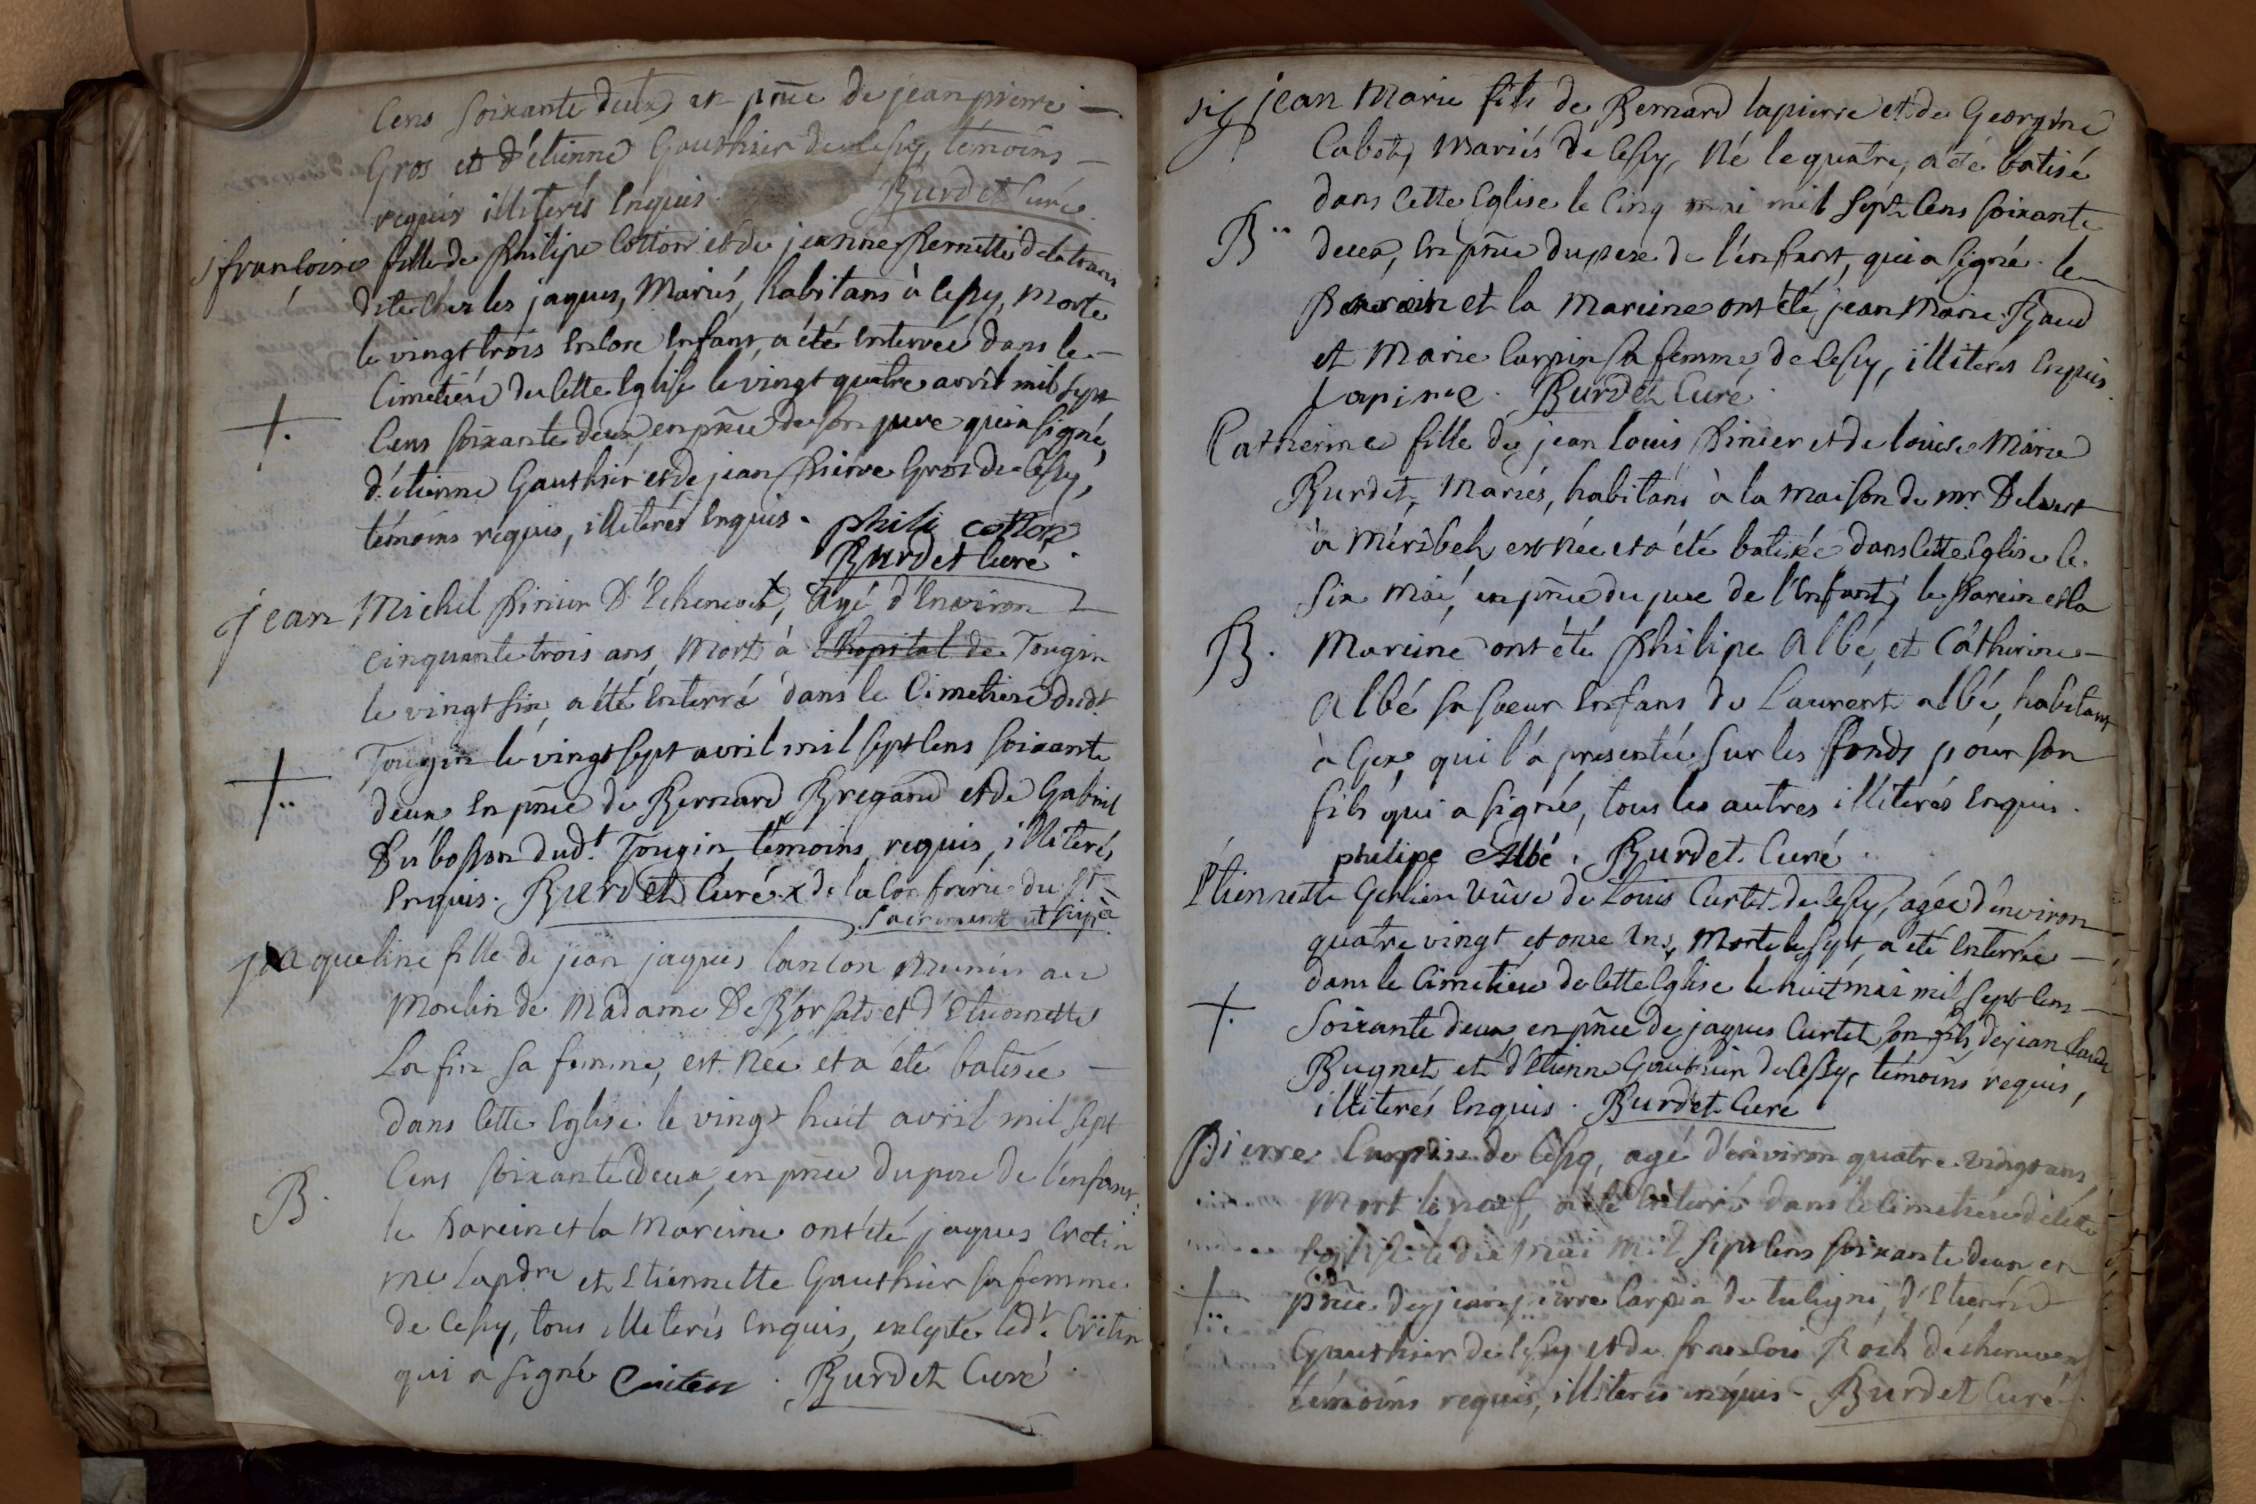 Cens soixante deux en pñce de jean pierre
Gros et d'étienne Gauthier de Cessy, témoins
requis illiterés Enquis. Burdet Curé
françoise fille de Philipe Cotton et de jeanne Pernette
dite Ches les jaques, Mariés, habitans à Cessy, morte
le vingt trois Encore Enfant, a été Enterrée dans le
Cimetiére de Cette Eglise le vingt quatre avril mil sept
Cens soixante deux, en pñce de son pere qui a signé,
d'étienne Gauthier et de jean Pierre Gros de Cessy,
témoins requis, illiterés Enquis. phili cotton
Burdet Curé
jean Michel Pinier D'Echenevex, agé d'Environ
cinquante trois ans, Mort à l'hopital de Tougin
le vingt six, a été Enterré dans le Cimetiere dudt
Tougin le vingt sept avril mil sept Cens soixante
deux En pñce de Bernard Bregand et de Gabriel
Dubosson dudt Tougin, témoins requis, illiterés
Enquis. Burdet Curé x de la Confrérie du St
Sacrement
jaqueline fille de jean jaques lancon Munier au
Moulin de Madame De Borsat et d'Etiennette
La fin sa femme, est Née et a été batisée
dans Cette Eglise le vingt huit avril mil sept
Cens soixante deux, en pñce du pere de l'enfant,
B.
le Parein et la Mareine ont été jaques Cretin
et Etiennette Gauthier sa femme
de Cessy, tous illiterés Enquis, excepté ledt Cretin
qui a signé Burdet Curé
jean Marie fils de Bernard lapierre et de Georgine
Cabot, Mariés de Cessy, Né le quatre, a été batisé
dans Cette Eglise le Cinq mai mil sept Cens soixante
B
deux, En pñce du pere de l'enfant, qui a signé. le
Parein et la Mareine ont été jean Marie Baud
et Marie Carpin sa femme, de Cessy, illiterés Enquis.
Burdet Curé
Catherine fille de jean louis Pinier et de louise Marie
Burdet, Mariés, habitans à la maison de mr.
à Méribel, est Née et a été batisée dans Cette Eglise le
six mai, en pñce du pere de l'Enfant, le Parein et la
B.
Mareine ont été Philipe Albé, et Catherine
Albé sa soeur Enfans de Laurent albé, habitant
à Gex, qui l'a presentée sur les fonds pour son
fils qui a signé, tous les autres illiterés Enquis.
philipe Albé. Burdet Curé
Etiennette Gerlier veuve de Louis Curtet de Cessy, agée d'environ
quatre vingt et onze Ans, Morte le sept, a été Enterrée
dans le Cimetiere de Cette Eglise le huit mai mil sept Cens
Soixante deux, en pñce de jaques Curtet son fils, de jean
Bugnet et d'Etienne Gauthier de Cessy, témoins requis,
illiterés Enquis. Burdet Curé
Pierre Carpin de Cessy, agé d'environ quatre vingt ans,
Mort le neuf, a été Enterré dans le Cimetiére de Cette
Eglise le dix mai Mil Sept Cens soixante deux en
pñce de jean pierre Carpin de tutigni, d'Etienne
Gauthier de Cessy et de francois Roch d'échenevex
témoins requis, illiterés enquis. Burdet Curé